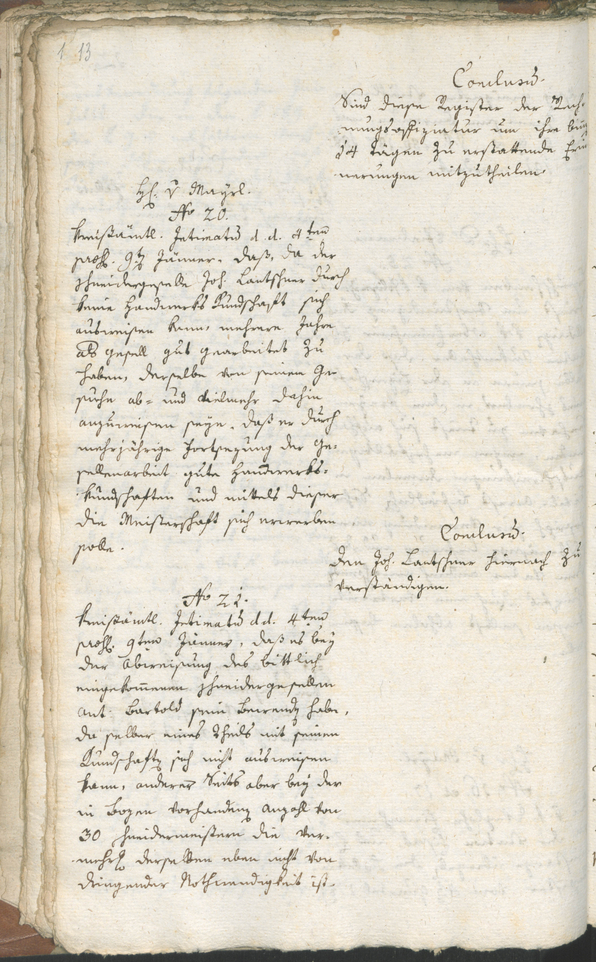 1 13
Conclusum.
Sind diese Register der Rech-
nungsoffiziatur um ihre bin
14 tägen zu erstattende Erin
nerungen mitzutheilen.
H. v Mayrl.
No 20.
Kreisämtl. Intimatum d. d. 4ten
pros. 9ten Jänner, daß, da der
Schneidergeselle Joh. Lantschner durch
keine Handwerks Kundschaft sich
ausweisen kann, mehrere Jahre
als Gesell gut gearbeitet zu
haben, derselbe von seinem Ge-
suche ab- und vielmehr dahin
anzuweisen seye, daß er durch
mehrjährige Fortsezung der Ge-
sellenarbeit gute Handwerks-
kundschaften und mittels dieser
die Meisterschaft sich erwerben
solle.
Conclusum.
Den Joh. Lantschner hiernach zu
verständigen.
No 21.
Kreisämtl. Intimatum d. d. 4ten
pros. 9ten Jänner, daß es bey
der Abweisung des bittlich
eingekommenen Schneidergesellen
Ant. Bartold sein Bewenden habe,
da selber eines Theils mit seinen
Kundschaften sich nicht ausweisen
kann, anderer Seits aber bey der
in Bozen vorhandenen Anzahl von
30 Schneidermeistern die Ver-
mehrung derselben eben nicht von
dringender Nothwendigkeit ist.